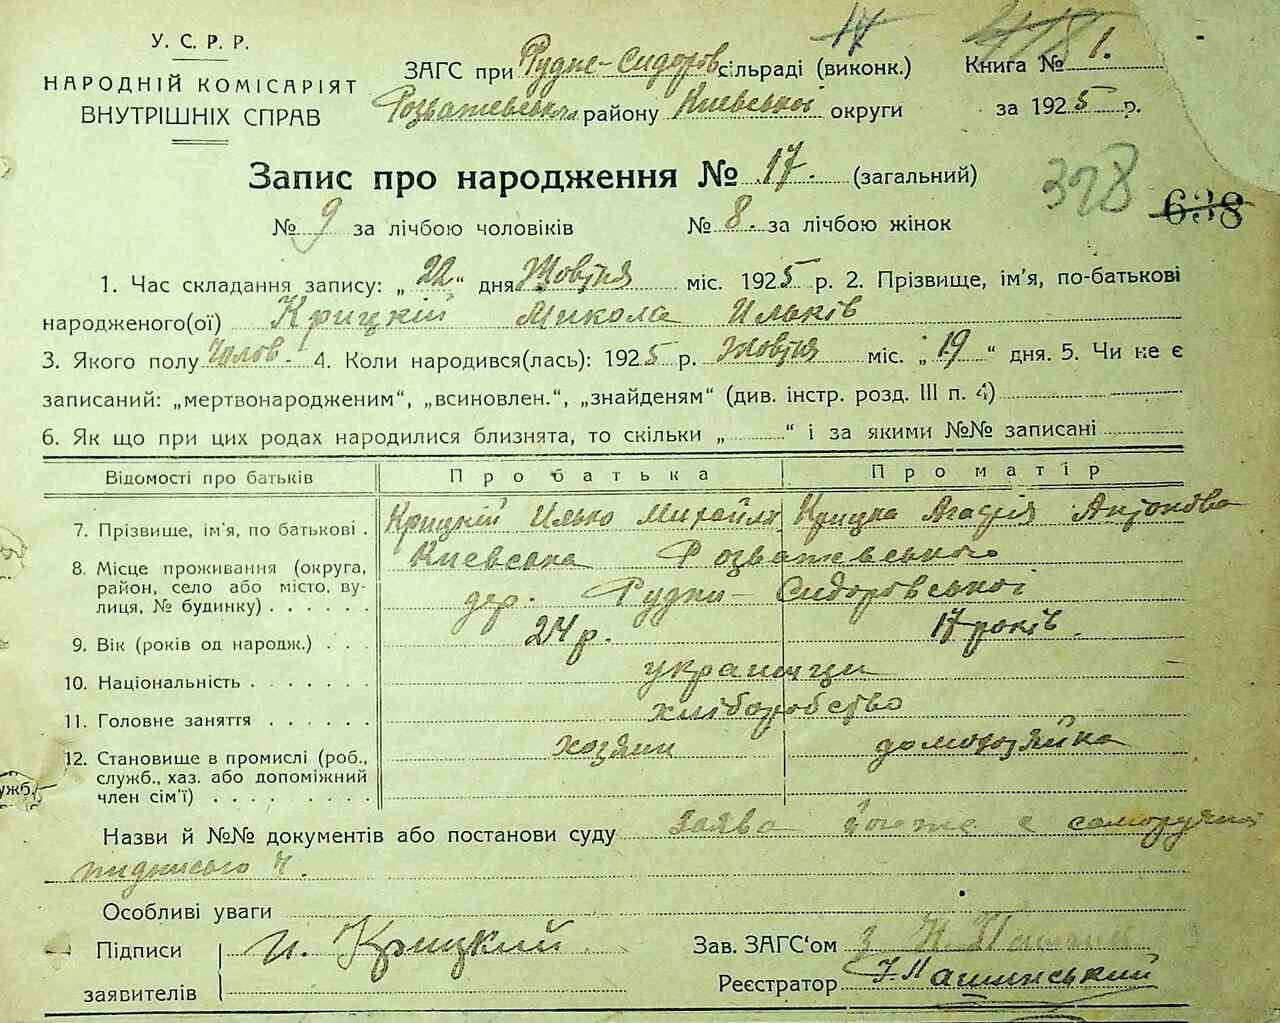 У. С. Р. Р.
НАРОДНІЙ КОМІСАРІЯТ
ВНУТРІШНІХ СПРАВ
17
ЗАГС при Рудне-Сидоров сільраді (виконк.) Книга № 1.
Розважевського району Киевської округи за 1925 р.
Запис про народження № 17. (загальний)
378
638
№ 9 за лічбою чоловіків № 8. за лічбою жінок
1. Час складання запису: „ 22 “ дня Жовтня міс. 1925 р. 2. Прізвище, ім'я, по-батькові
народженого(ої) Крицкій Микола Ильків
3. Якого полу Чолов. 4. Коли народився(лась): 1925 р. Жовтня міс. „ 19 “ дня. 5. Чи не є
записаний: „мертвонародженим“, „всиновлен.“, „знайденям“ (див. інстр. розд. III п. 4)
6. Як що при цих родах народилися близнята, то скільки „ “ і за якими №№ записані
Відомості про батьків Про батька Про матір
7. Прізвище, ім'я, по батькові . Крицкій Илько Михайлів Крицка Агафія Антонова
8. Місце проживання (округа, Киевська Розважевського
район, село або місто, ву-
лиця, № будинку) . . . . . . дер. Рудня-Сидоровської
9. Вік (років од народж.) . . . 24 р. 17 років.
10. Національність . . . . . . . українци
11. Головне заняття . . . . . . хліборобство
12. Становище в промислі (роб., хозяин домохозяйка
служб., хаз. або допоміжний
член сім'ї) . . . . . . . . .
ужб.
Назви й №№ документів або постанови суду заява саморучной
підписью
Особливі уваги
Підписи И. Крицкий Зав. ЗАГС‘ом
заявителів Реєстратор